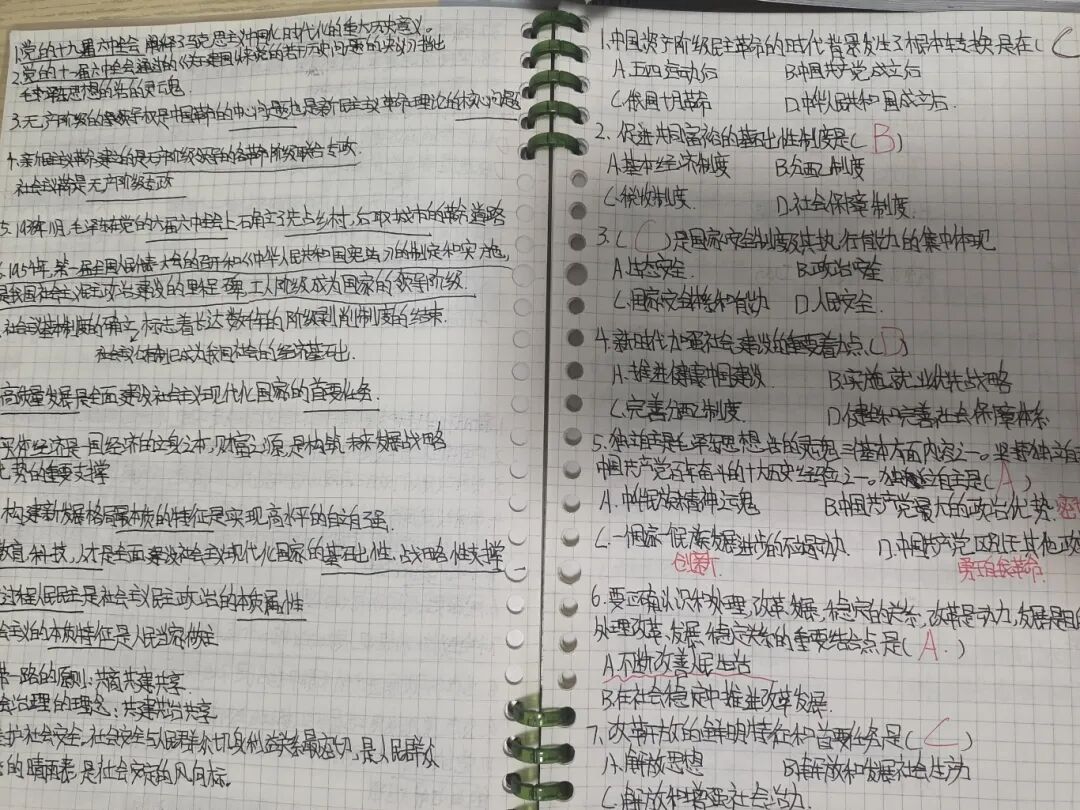 1.党的十九届六中全会 阐释了马克思主义中国化时代化的重大历史意义。
2.党的十一届六中全会通过的《关于建国以来党的若干历史问题的决议》指出
毛泽东思想的活的灵魂
3.无产阶级的领导权是中国革命的中心问题也是新民主主义革命理论的核心问题
4.新民主主义革命建立的是无产阶级领导的各革命阶级联合专政.
社会主义革命是无产阶级专政
5.1938年11月,毛泽东在党的六届六中全会上 确立了先占乡村,后取城市的革命道路
1954年,第一届全国人民代表大会的召开和《中华人民共和国宪法》的制定和实施,
是我国社会主义民主政治建设的里程碑,工人阶级成为国家的领导阶级.
社会主义基本制度的确立,标志着长达数千年的阶级剥削制度的结束.
社会主义公有制已成为我国社会的经济基础.
高质量发展是全面建设社会主义现代化国家的首要任务.
实体经济是一国经济的立身之本,财富之源,是构筑未来发展战略
优势的重要支撑
构建新发展格局最本质的特征是实现高水平的自立自强.
教育,科技,人才是全面建设社会主义现代化国家的基础性,战略性支撑
过程人民民主是社会主义民主政治的本质属性
会主义的本质特征是人民当家做主
带一路的原则:共商共建共享.
会治理的理念:共建共治共享
维护社会安全,社会安全与人民群众切身利益关系最密切,是人民群众
的晴雨表,是社会安定的风向标.
1.中国资产阶级民主革命的时代背景发生了根本转换是在( C
A.五四运动后 B.中国共产党成立后
C.俄国十月革命 D.中华人民共和国成立后.
2.促进共同富裕的基础性制度是( B )
A.基本经济制度 B.分配制度
C.税收制度. D.社会保障制度.
3.( C )是国家安全制度及其执行能力的集中体现
A.生态安全. B.政治安全
C.国家安全体系和能力 D.人民安全.
4.新时代加强社会建设的重要着力点.( D )
A.推进健康中国建设. B.实施就业优先战略
C.完善分配制度. D.健全和完善社会保障体系
5.独立自主是毛泽东思想活的灵魂三个基本方面内容之一。坚持独立自
中国共产党百年奋斗的十大历史经验之一。独立自主是( A )
A.中华民族精神之魂 B.中国共产党最大的政治优势.密
C.一个国家一个民族发展进步的不竭动力. D.中国共产党区别于其他政
创新 勇于自我革命.
6.要正确认识和处理,改革,发展,稳定的关系,改革是动力,发展是目
处理改革、发展、稳定关系的重要结合点是( A. )
A.不断改善人民生活
B.在社会稳定中推进改革发展.
7.改革开放的鲜明特征和首要任务是( C )
A.解放思想 B.解放和发展社会生产力
C.解放和增强社会活力.